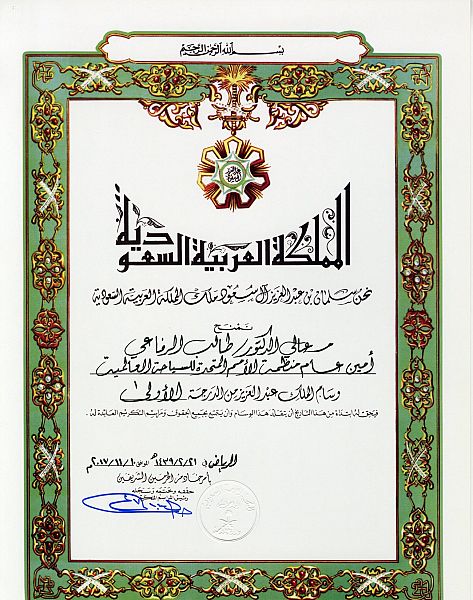 بسم الله الرحمن الرحيم
المملكة العربية السعودية
نحن سلمان بن عبد العزيز آل سعود ملك المملكة العربية السعودية
نمنح
معالي الدكتور طالب الرفاعي
أمين عام منظمة الأمم المتحدة للسياحة العالمية
وسام الملك عبد العزيز من الدرجة الأولى
فيحق له ابتداءً من هذا التاريخ أن يتقلد هذا الوسام وأن يتمتع بجميع الحقوق ومراسم التكريم العائدة له .
الرياض في ١٤٣٩/٢/٢١هـ الموافق ٢٠١٧/١١/١٠م
بأمر خادم الحرمين الشريفين
حققه وختمه وسجله